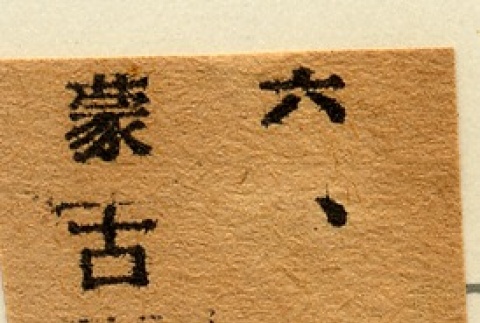 六、
蒙古